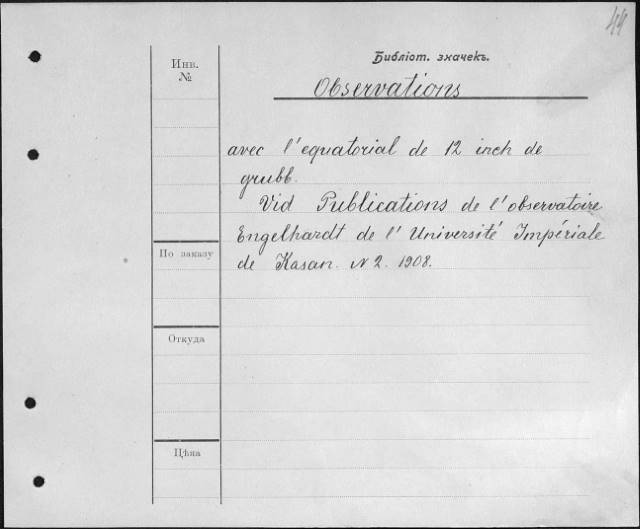 44
Библіот. значекъ.
Инв.
№
Observations
avec l'equatorial de 12 inch de
grubb.
Vid Publications de l'observatoire
Engelhardt de l'Université Impériale
По заказу
de Kasan. N 2. 1908.
Откуда
Цѣна